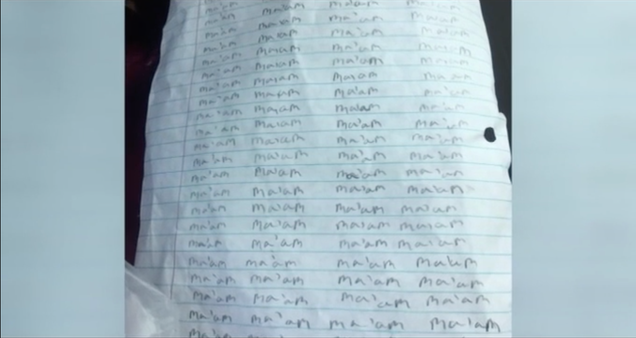 ma'am ma'am ma'am ma'am
ma'am ma'am ma'am ma'am
ma'am ma'am ma'am ma'am
ma'am ma'am ma'am ma'am
ma'am ma'am ma'am ma'am
ma'am ma'am ma'am ma'am
ma'am ma'am ma'am ma'am
ma'am ma'am ma'am ma'am
ma'am ma'am ma'am ma'am
ma'am ma'am ma'am ma'am
ma'am ma'am ma'am ma'am
ma'am ma'am ma'am ma'am
ma'am ma'am ma'am ma'am
ma'am ma'am ma'am ma'am
ma'am ma'am ma'am ma'am
ma'am ma'am ma'am ma'am
ma'am ma'am ma'am ma'am
ma'am ma'am ma'am ma'am
ma'am ma'am ma'am ma'am
ma'am ma'am ma'am ma'am